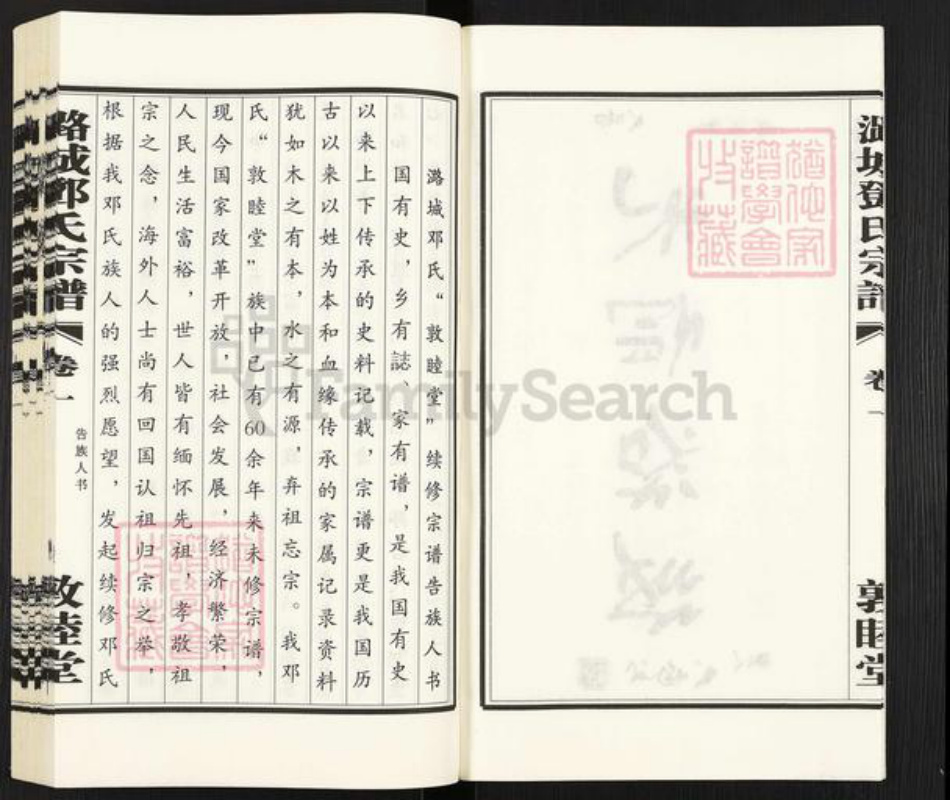 潞城鄧氏宗譜
卷一
敦睦堂
猶他家譜學會收藏
潞城邓氏“敦睦堂”续修宗谱告族人书
国有史，乡有誌、家有谱，是我国有史
以来上下传承的史料记载，宗谱更是我国历
古以来以姓为本和血缘传承的家属记录资料
犹如木之有本，水之有源，弃祖忘宗。我邓
氏“敦睦堂”族中已有60余年来未修宗谱，
现今国家改革开放，社会发展，经济繁荣，
人民生活富裕，世人皆有缅怀先祖，孝敬祖
宗之念，海外人士尚有回国认祖归宗之举，
根据我邓氏族人的强烈愿望，发起续修邓氏
告族人书
潞城邓氏宗谱
卷一
敦睦堂
猶他家譜學會收藏
FamilySearch